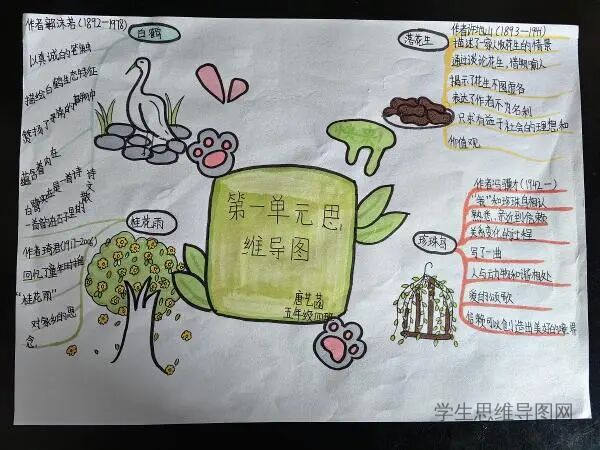 作者郭沫若(1892-1978)
白鹤
以真诚的笔触
描绘白鹤生态特征
蕴含着内在
白鹭实在是一首诗
一首韵在骨子里的散文诗
桂花雨
作者琦君(1917-2006)
回忆了童年时代
"桂花雨"
对故乡的思
念
第一单元思
维导图
唐艺菡
五年级四班
落花生
作者许地山(1893-1941)
描述了一家人收花生的情景
通过谈论花生,借物喻人
揭示了花生不图虚名
表达了作者不为名利
只求有益于社会的理想和
价值观
珍珠鸟
作者冯骥才(1942-)
"我"和珍珠鸟相认
熟悉、亲近到信赖
关系变化的过程
写了一曲
人与动物和谐相处
爱的颂歌
信赖可以创造出美好的境界
学生思维导图网